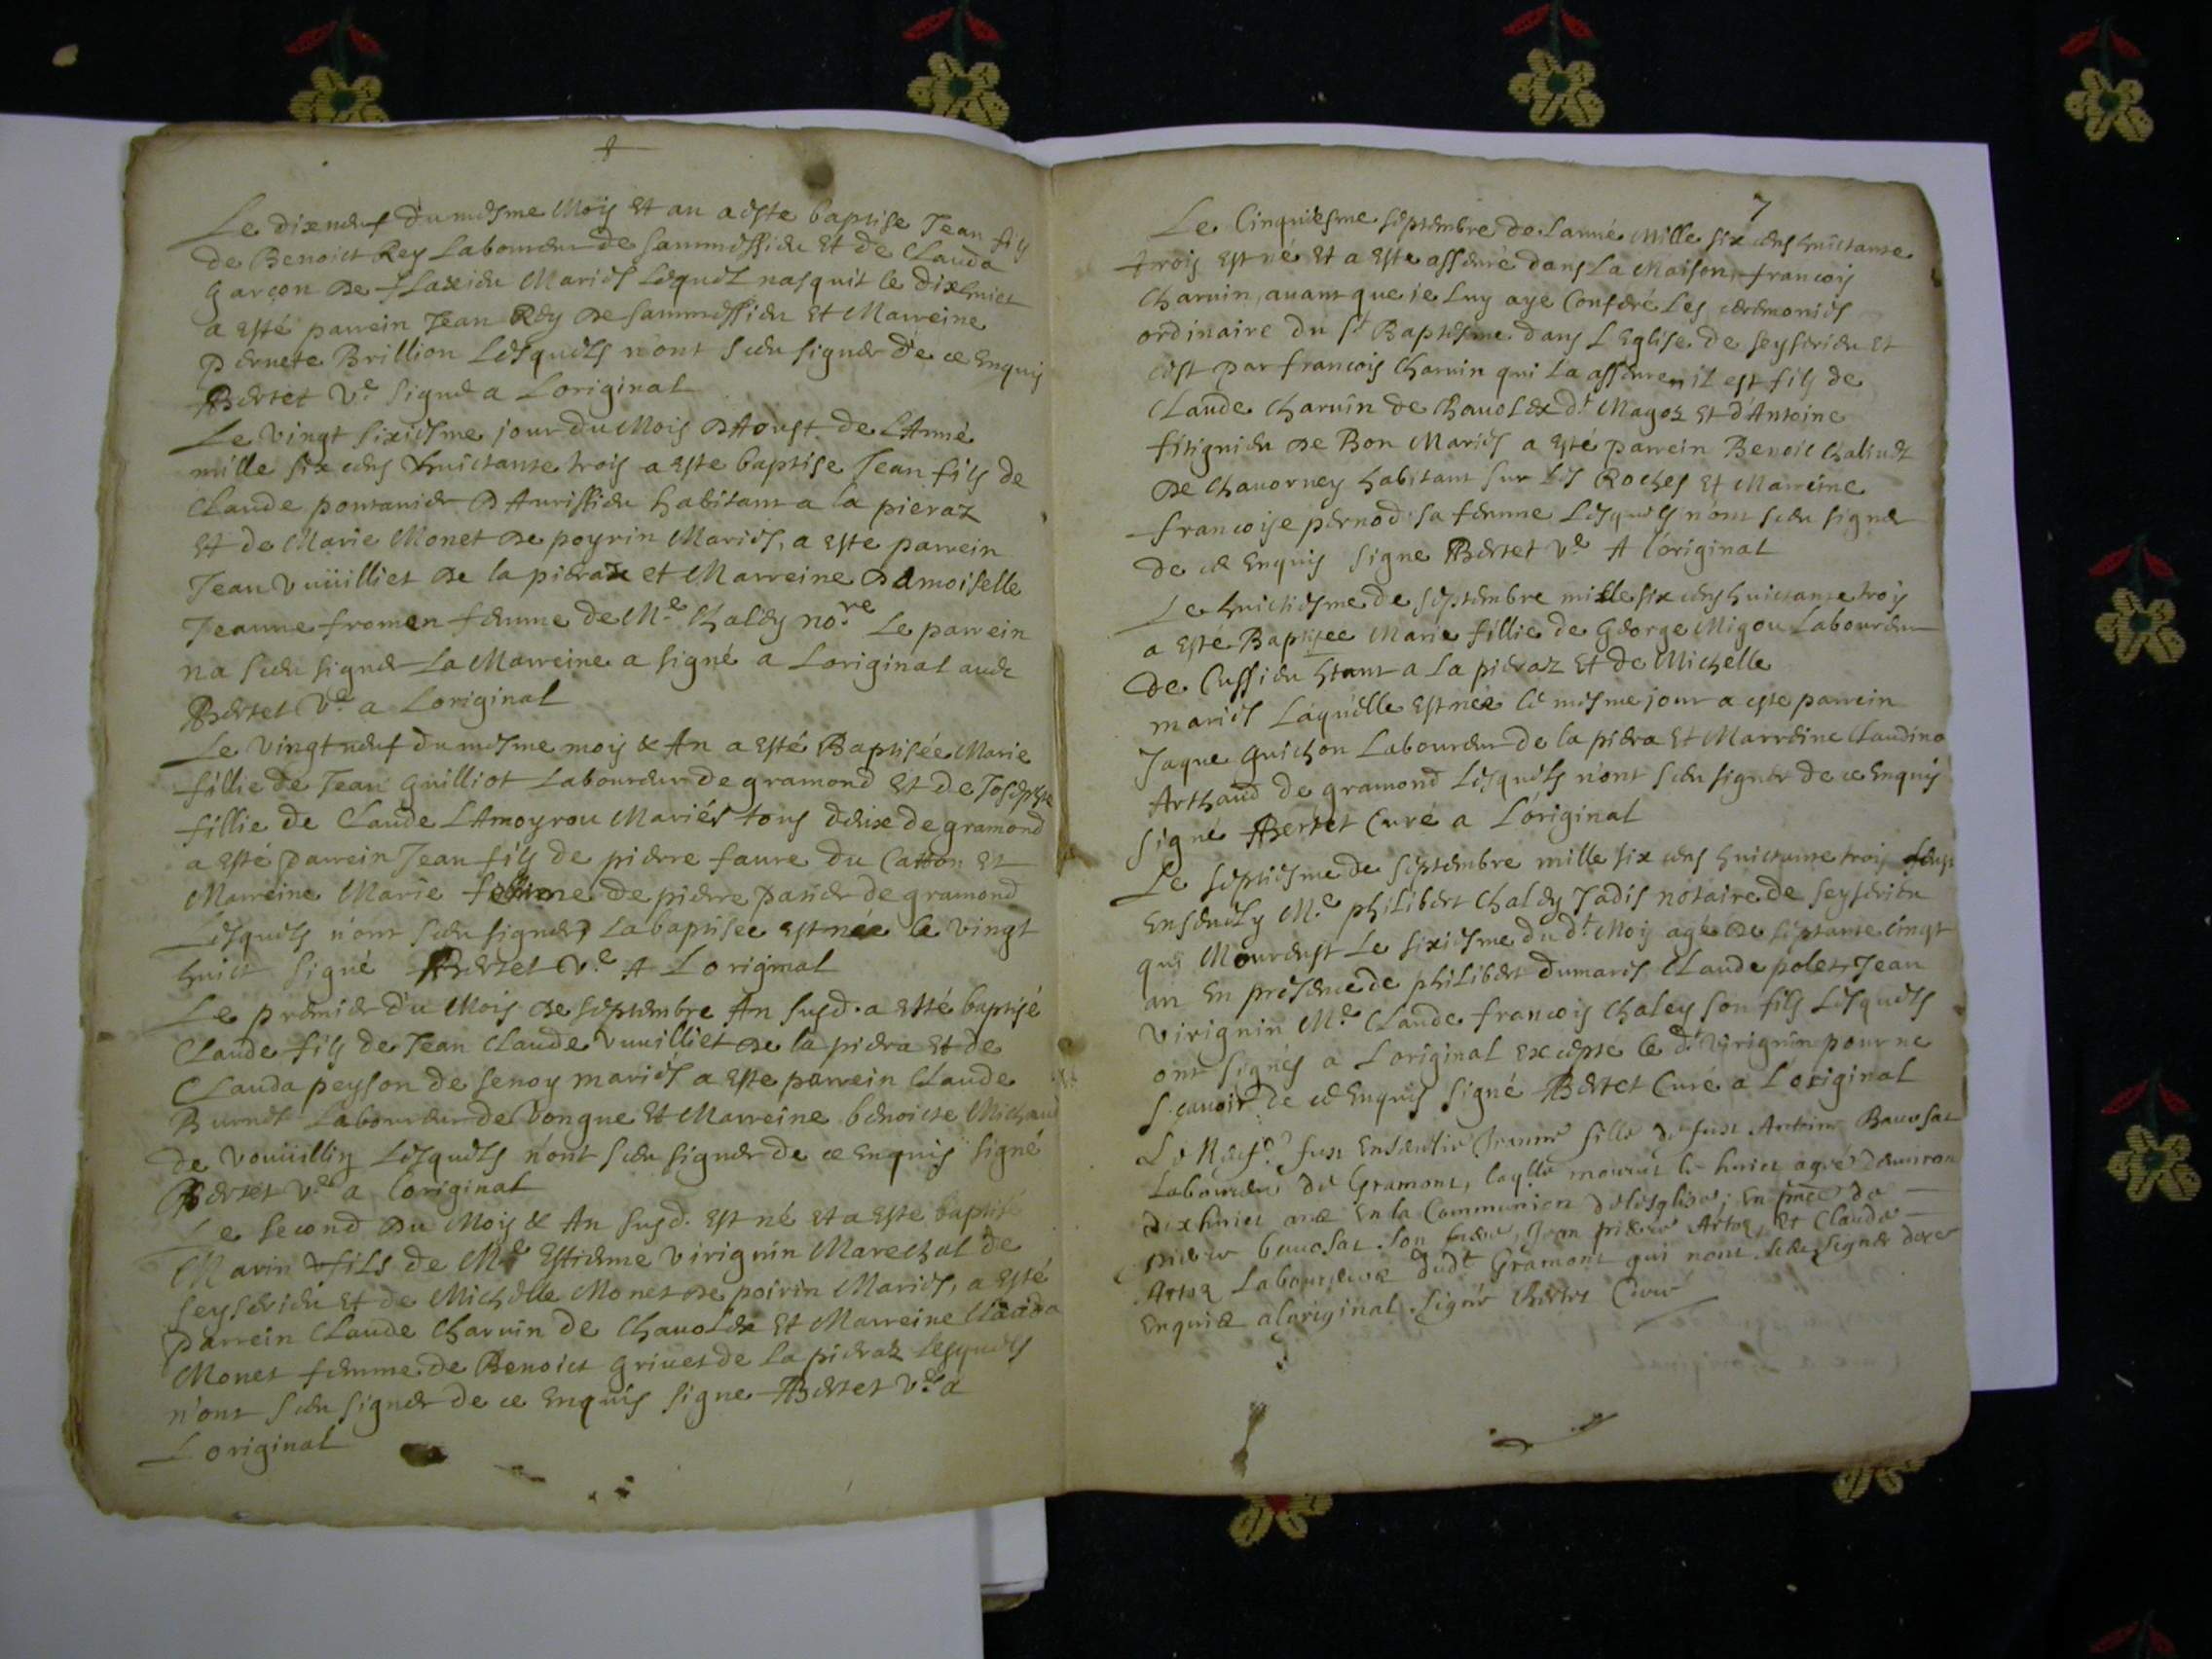 Le dixneuf du mesme Mois Et an a este baptise Jean fils
de Benoict Rey Laboureur de sammessieu Et de Clauda
Garçon de flaxieu Mariés Lequel nasquit le dixhuict
a esté parrein Jean Rey de sammessieu Et Marreine
Pernete Brillion Lesquels n'ont sceu signer de ce Enquis
Bertet Ve signé a Loriginal
Le Vingt sixiesme jour du Mois d'Aoust de L'Anné
mille six cens huictante trois a este baptise Jean fils de
Claude pontanier d'Aurissieu habitant a la pieraz
Et de Marie Monet de poyrin Mariés, a este parrein
Jean Vuïilliet de la pieraz et Marreine Damoiselle
Jeanne fromen femme de Me Chaley nore Le parrein
na sceu signer La Marreine a signé a Loriginal avec
Bertet Ve a Loriginal
Le Vingtneuf du mesme mois & An a esté Baptisée Marie
fillie de Jean Guilliot Laboureur de gramond Et de Josepte
fillie de Claude LAmoyrou Mariés tous deux de gramond
a esté parrein Jean fils de pierre faure du Catton Et
Marreine Marie femme de pierre pasier de gramond
Lesquels n'ont sceu signer, La baptisee est née le Vingt
huict signé Bertet Ve A Loriginal
Le premier du Mois de septembre An susd. a esté baptisé
Claude fils de Jean Claude Vuuilliet de la piera Et de
Clauda peyson de senoy mariés a este parrein Claude
Burnet Laboureur de Vongne Et Marreine benoiste Michaud
de Vouüillin Lesquels n'ont sceu signer de ce enquis signé
Bertet Ve a loriginal
Le second du Mois & An susd. Est né et a este baptisé
Marin fils de Me Estienne Virignin Marechal de
seyserieu Et de Michelle Monet de poirin Mariés, a esté
parrein Claude Charuin de Chauolex Et Marreine Clauda
Monet femme de Benoict Griuet de la pieraz Lesquels
n'ont sceu signer de ce enquis signe Bertet Ve a
Loriginal
7
Le Cinquiesme septembre de Lanné Mille six cens huictante
trois Est né Et a este assuré dans La Maison, francois
Charuin, auant que ie Luy aye Conferé Les ceremonies
ordinaire du st Baptesme dans L'Eglise de seyserieu Et
cest par francois Charuin qui La assuré, il est fils de
Claude Charuin de Chauolex dt Magoz Et d'Antoine
fitignieu de Bon Mariés a esté parrein Benoit Chaliudz
de Chauorney habitant sur Les Roches Et Marreine
francoise pernod sa femme Lesquels n'ont sceu signer
de ce Enquis signe Bertet Ve A Loriginal
Le huictiesme de septembre mille six cens huictante trois
a este Baptisee Marie fillie de George Migou Laboureur
de Cussieu htant a La pieraz Et de Michelle
mariés Laquelle Est née le mesme jour a este parrein
Jaque Guichon Laboureur de la piera Et Marreine Claudina
Arthaud de gramond Lesquels n'ont sceu signer de ce enquis
signé Bertet Curé a Loriginal
Le septiesme de septembre mille six cens huictante trois feust
Enseuely Me philibert Chaley Jadis notaire de seyserieu
que Mourust Le sixiesme du dt Mois agé de septante cinqt
an En presence de philibert dumarés Claude polet, Jean
Virignin Me Claude francois Chaley son fils Lesquels
ont signés a Loriginal Excepté le dt Virignin pour ne
sçauoir de ce Enquis signé Bertet Curé a Loriginal
Le Neufe fust Enseuelie Jeanne fille de feu Antoine Bauosat
Laboureur de Gramont, laqlle mourut le huict agée denuiron
dixhuict ans En la Communion de lesglise; En pnce de
pierre bauosat son frere, Jean pierre Artoz, Et Claude
Artoz Laboureurs dudt Gramont qui nont sceu signer de ce
Enquis aloriginal. Signé Bertet Curé